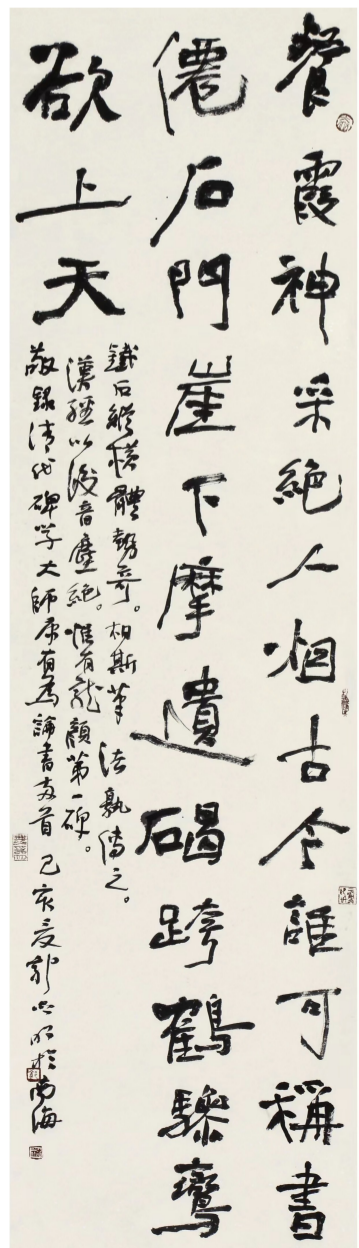 餐霞神采絕人烟古今誰可稱書
僊石門崖下摩遺碣跨鶴驂鸞
欲上天
鐵石縱橫體勢奇。相斯筆法孰傳之。
漢經以後音塵絕。惟有龍顏第一碑。
敬錄清代碑学大師康有為論書两首 己亥夏 於南海